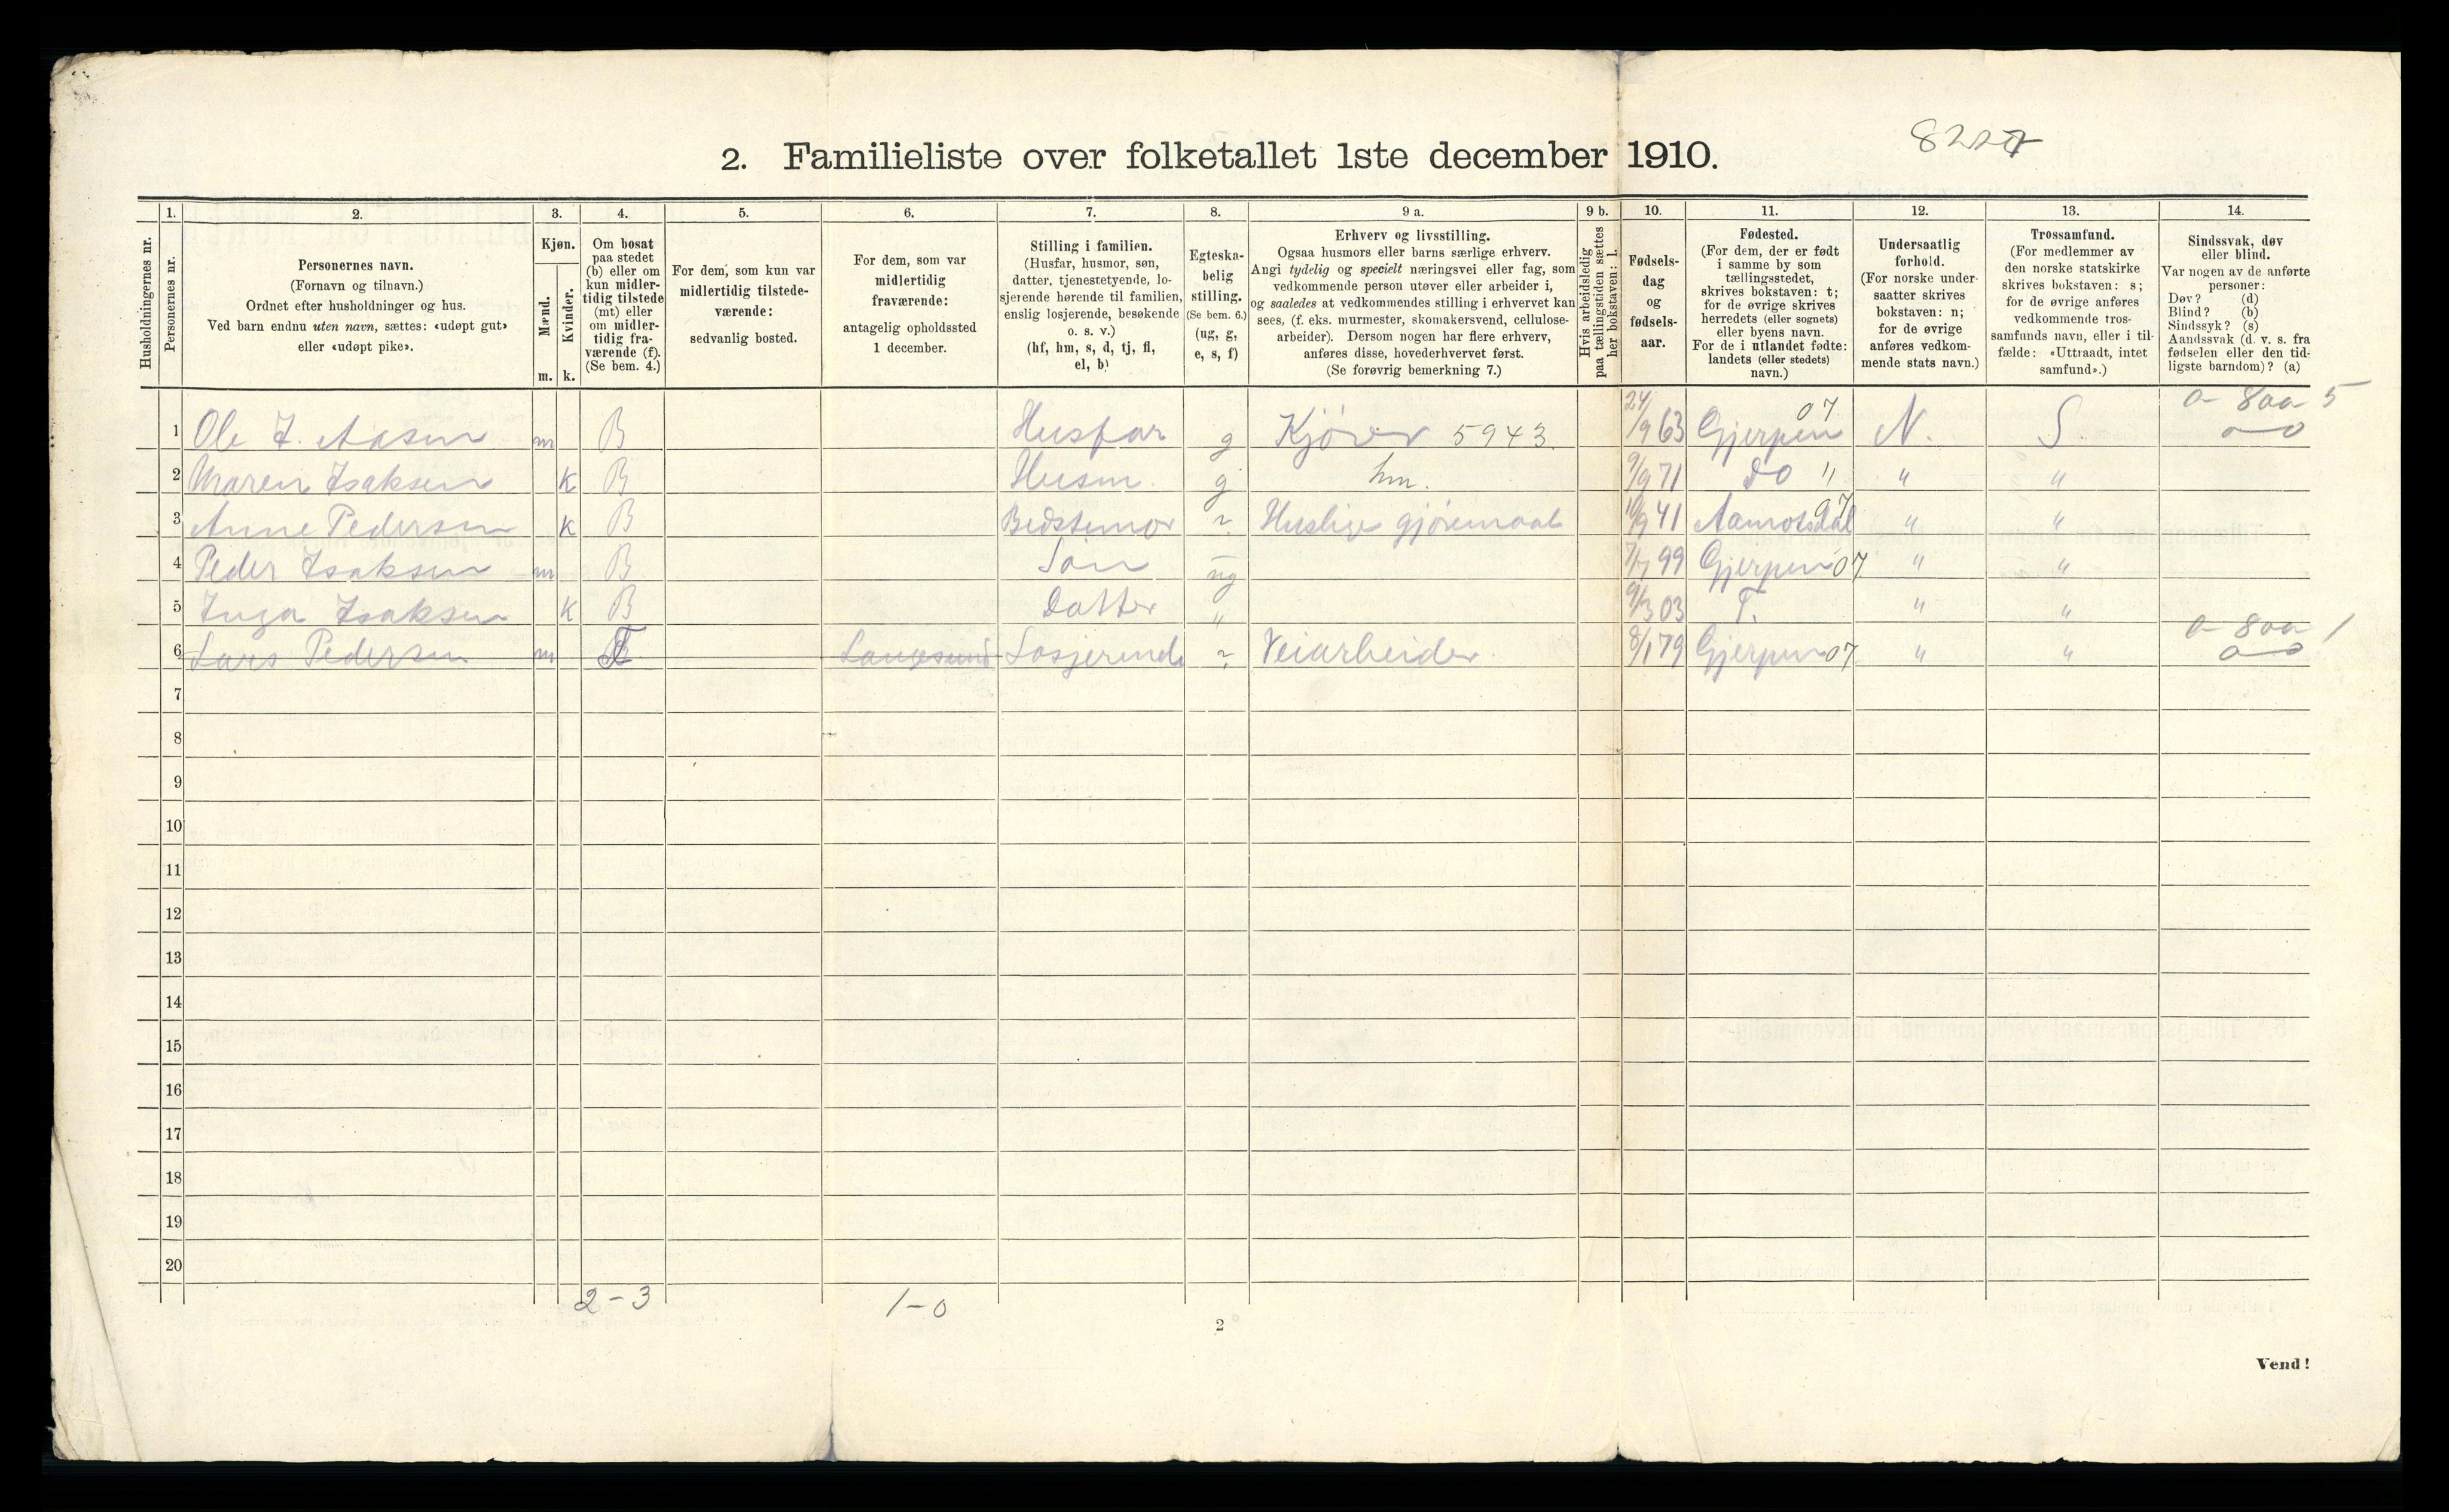 8227
2. Familieliste over folketallet 1ste december 1910.
Husholdningernes nr.
1.
Personernes nr.
2.
Personernes navn.
(Fornavn og tilnavn.)
Ordnet efter husholdninger og hus.
Ved barn endnu uten navn, sættes: «udøpt gut»
eller «udøpt pike».
3.
Kjøn.
Mænd.
Kvinder.
m. k.
4.
Om bosat
paa stedet
(b) eller om
kun midler-
tidig tilstede
(mt) eller
om midler-
tidig fra-
værende (f).
(Se bem. 4.)
5.
For dem, som kun var
midlertidig tilstede-
værende:
sedvanlig bosted.
6.
For dem, som var
midlertidig
fraværende:
antagelig opholdssted
1 december.
7.
Stilling i familien.
(Husfar, husmor, søn,
datter, tjenestetyende, lo-
sjerende hørende til familien,
enslig losjerende, besøkende
o. s. v.)
(hf, hm, s, d, tj, fl,
el, b)
8.
Egteska-
belig
stilling.
(Se bem. 6.)
(ug, g,
e, s, f)
9 a.
Erhverv og livsstilling.
Ogsaa husmors eller barns særlige erhverv.
Angi tydelig og specielt næringsvei eller fag, som
vedkommende person utøver eller arbeider i,
og saaledes at vedkommendes stilling i erhvervet kan
sees, (f. eks. murmester, skomakersvend, cellulose-
arbeider). Dersom nogen har flere erhverv,
anføres disse, hovederhvervet først.
(Se forøvrig bemerkning 7.)
9 b.
Hvis arbeidsledig
paa tællingstiden sættes
her bokstaven: l.
10.
Fødsels-
dag
og
fødsels-
aar.
11.
Fødested.
(For dem, der er født
i samme by som
tællingsstedet,
skrives bokstaven: t;
for de øvrige skrives
herredets (eller sognets)
eller byens navn.
For de i utlandet fødte:
landets (eller stedets)
navn.)
12.
Undersaatlig
forhold.
(For norske under-
saatter skrives
bokstaven: n;
for de øvrige
anføres vedkom-
mende stats navn.)
13.
Trossamfund.
(For medlemmer av
den norske statskirke
skrives bokstaven: s;
for de øvrige anføres
vedkommende tros-
samfunds navn, eller i til-
fælde: «Uttraadt, intet
samfund».)
14.
Sindssvak, døv
eller blind.
Var nogen av de anførte
personer:
Døv? (d)
Blind? (b)
Sindssyk? (s)
Aandssvak (d. v. s. fra
fødselen eller den tid-
ligste barndom)? (a)
1 Ole J. Aasen m B Husfar g Kjører 5943 24/9 63 Gjerpen 07 N. S.
2 Maren Isaksen K B Husm. g hm. 9/9 71 Do " " "
3 Anne Pedersen K B Bedstemor Huslige gjøremaal 10/9 41 07 " "
4 Peder Isaksen m B Søn ug 7/7 99 Gjerpen 07 " "
5 Inga Isaksen K B Datter " 9/3 03 T. " "
6 Lars Pedersen m Langesund Losjerende Veiarbeider 8/1 79 Gjerpen 07 " "
7
8
9
10
11
12
13
14
15
16
17
18
19
20
2-3 1-0
2
Vend!